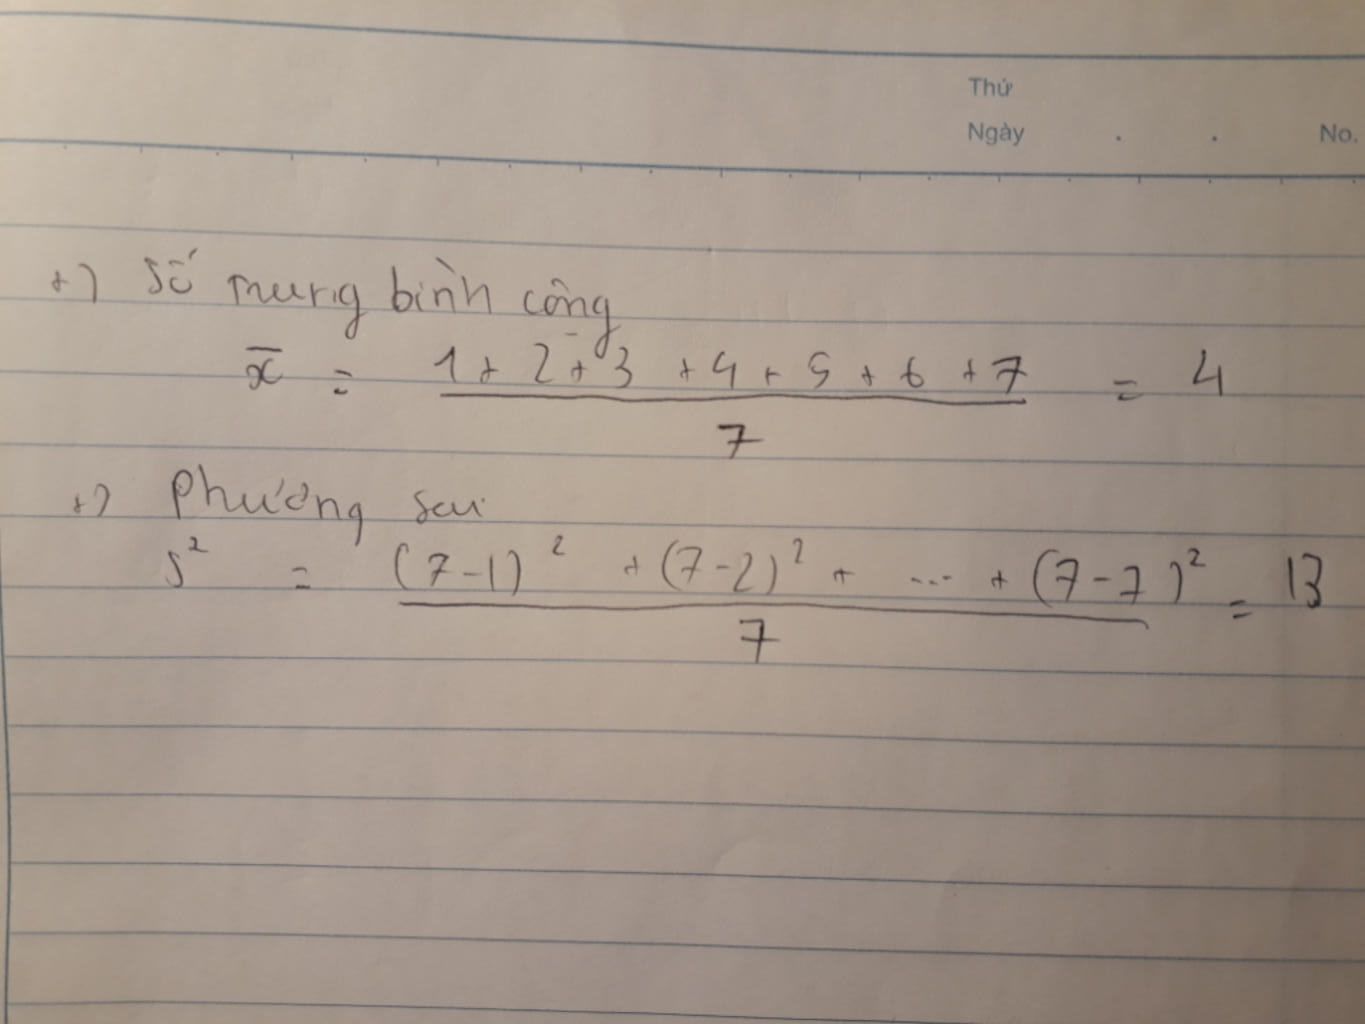 Thứ
Ngày . . No.
+) Số trung bình cộng
x̄ = (1 + 2 + 3 + 4 + 5 + 6 + 7) / 7 = 4
+) Phương sai
s² = ((7-1)² + (7-2)² + ... + (7-7)²) / 7 = 13